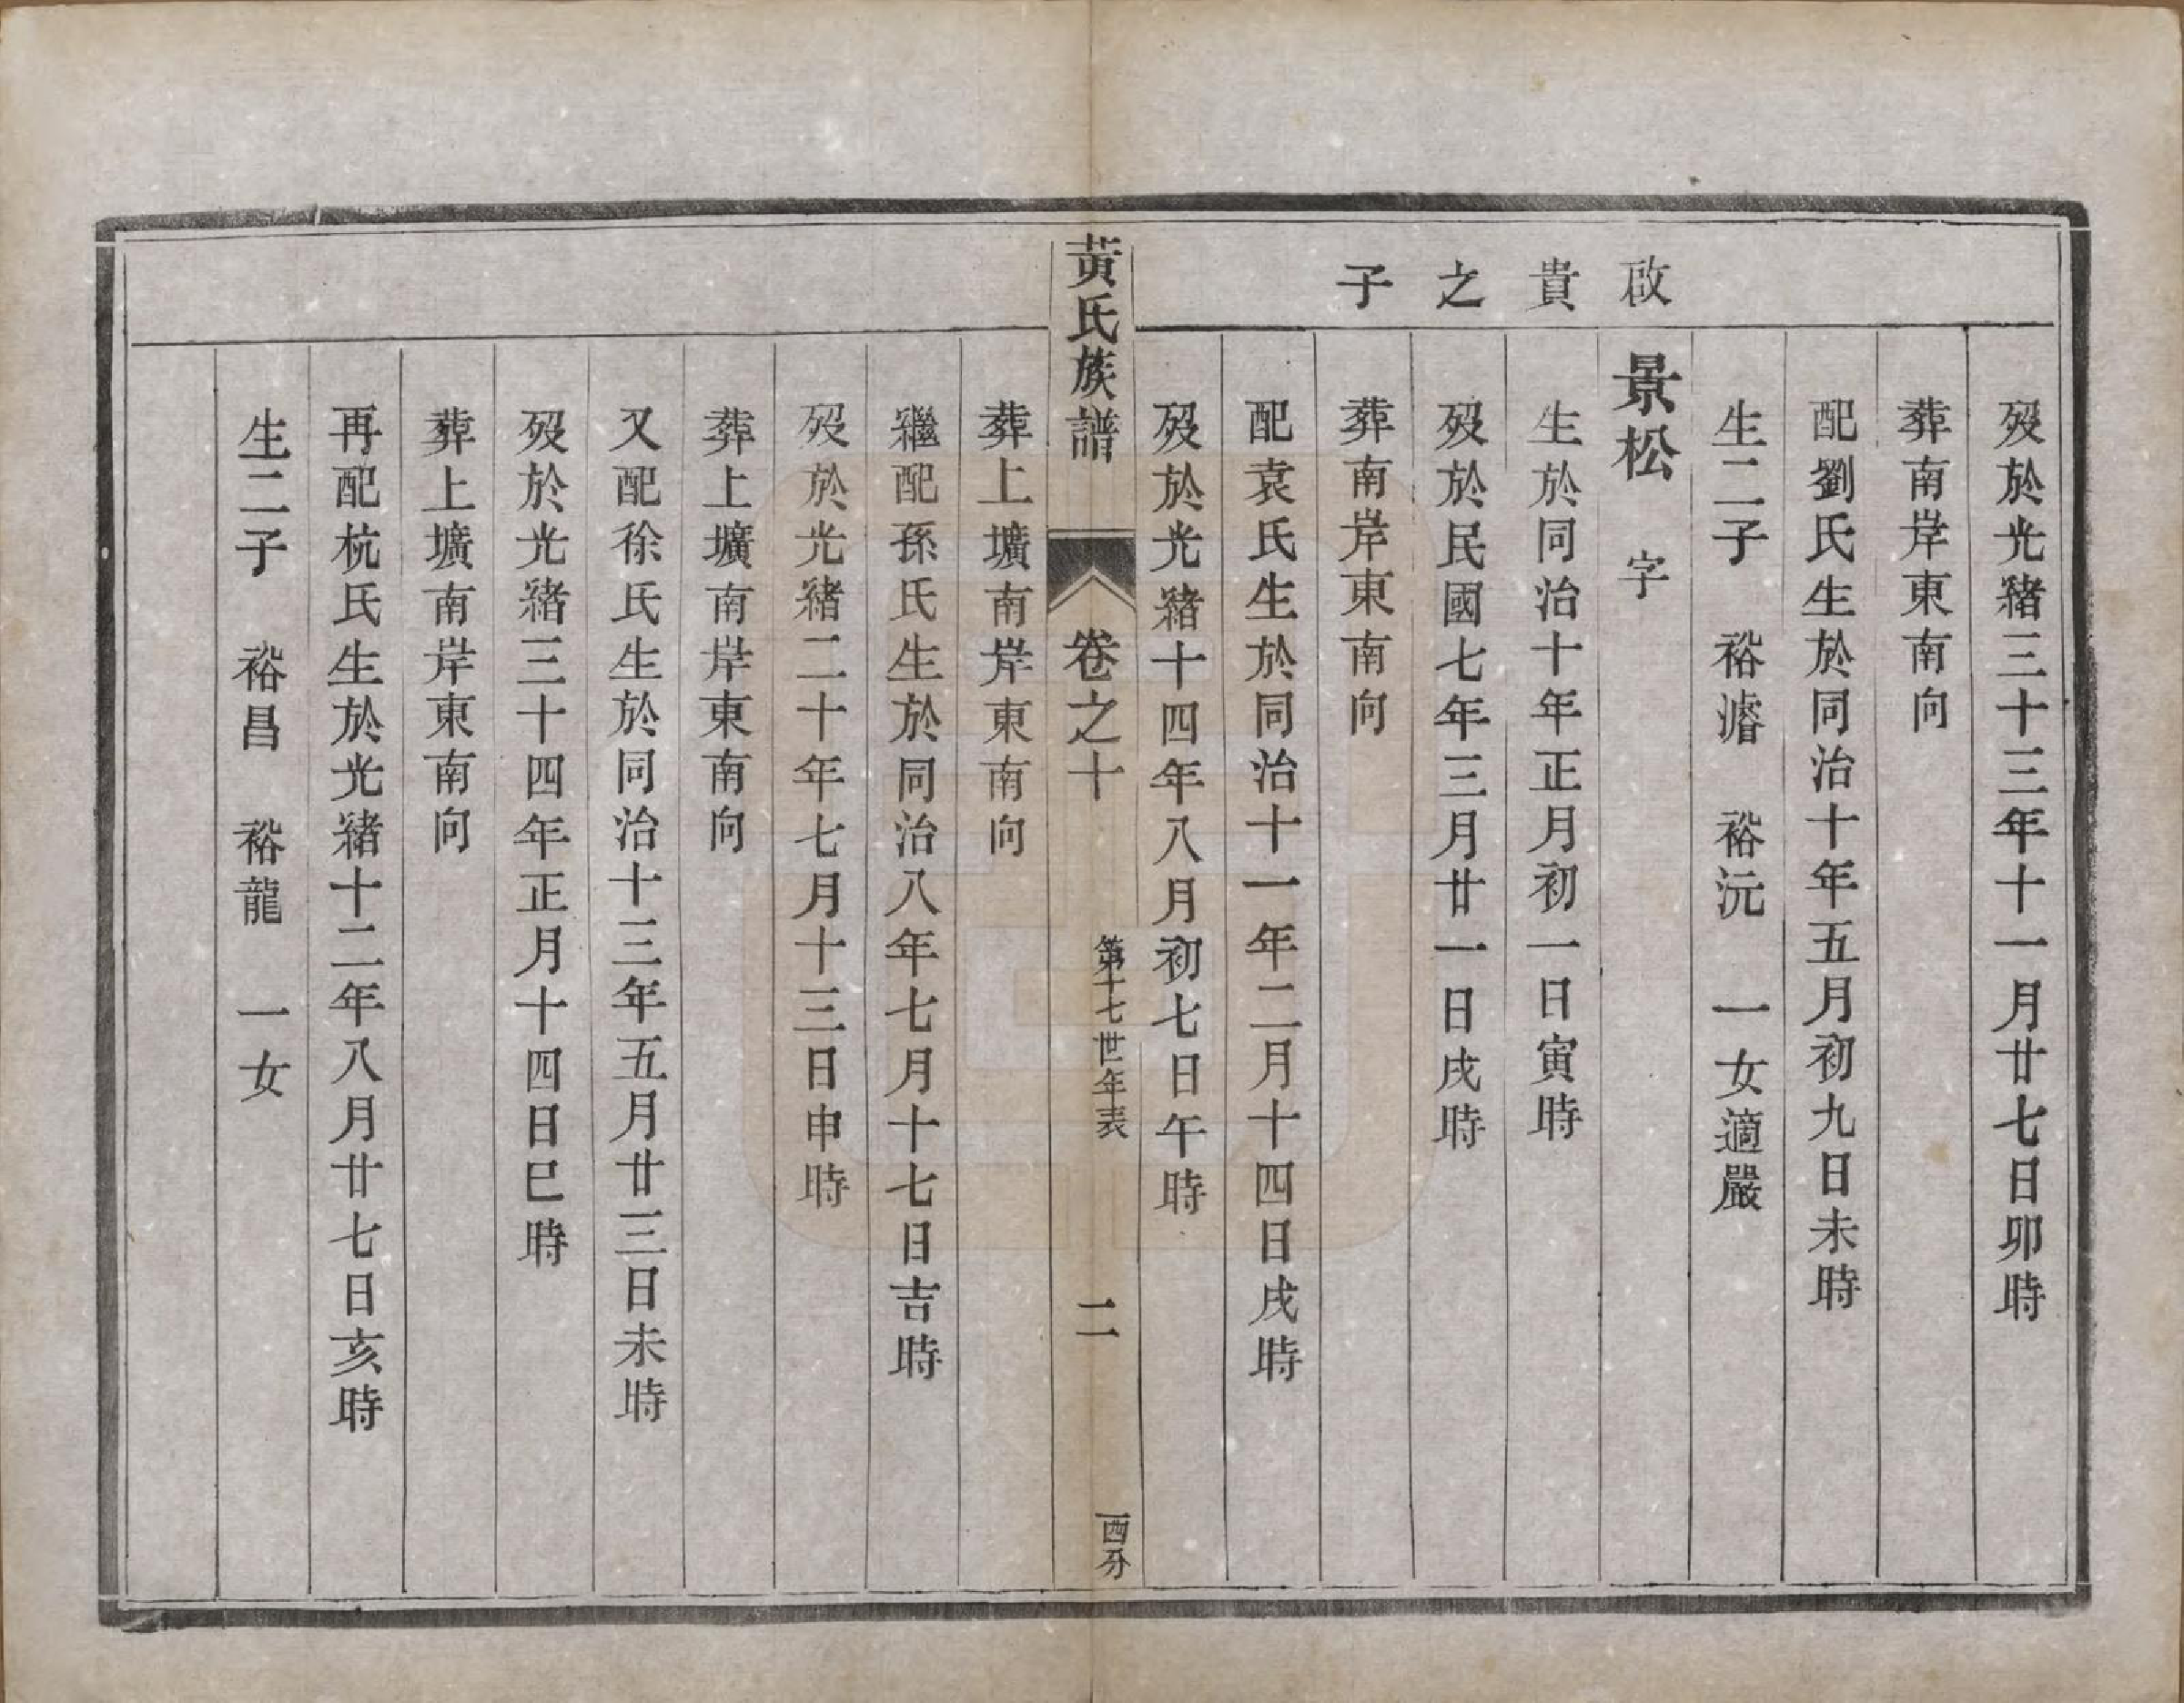 歿於光緒三十三年十一月廿七日卯時
葬南岸東南向
配劉氏生於同治十年五月初九日未時
生二子　裕濬　裕沅　一女適嚴
啟貴之子
景松　字
生於同治十年正月初一日寅時
歿於民國七年三月廿一日戌時
葬南岸東南向
配袁氏生於同治十一年二月十四日戌時
歿於光緒十四年八月初七日午時
黃氏族譜　卷之十　第十七世年表　二　西分
葬上壙南岸東南向
繼配孫氏生於同治八年七月十七日吉時
歿於光緒二十年七月十三日申時
葬上壙南岸東南向
又配徐氏生於同治十三年五月廿三日未時
歿於光緒三十四年正月十四日巳時
葬上壙南岸東南向
再配杭氏生於光緒十二年八月廿七日亥時
生二子　裕昌　裕龍　一女